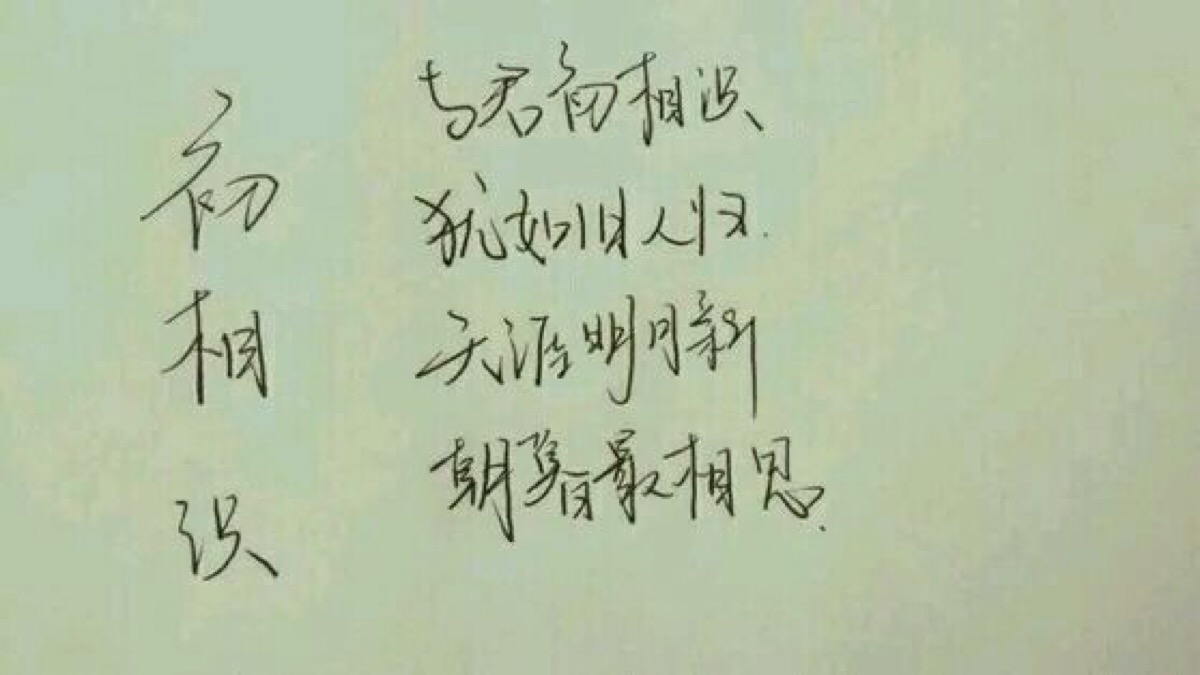 初相识
与君初相识
犹如旧人归.
天涯明月新
朝暮最相思.